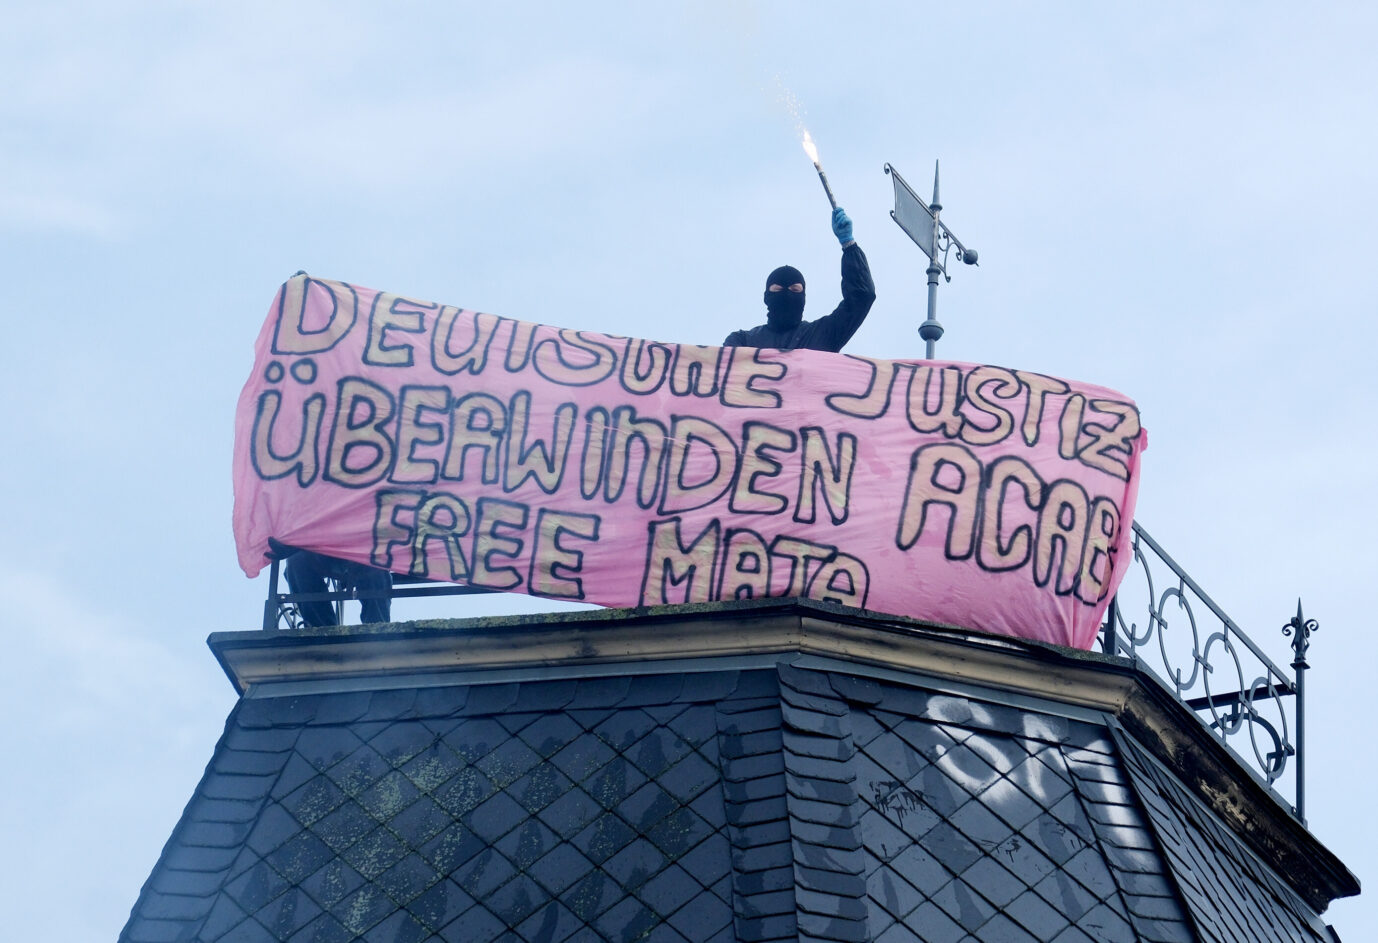 DEUTSCHE JUSTIZ
ÜBERWINDEN ACAB
FREE MAJA